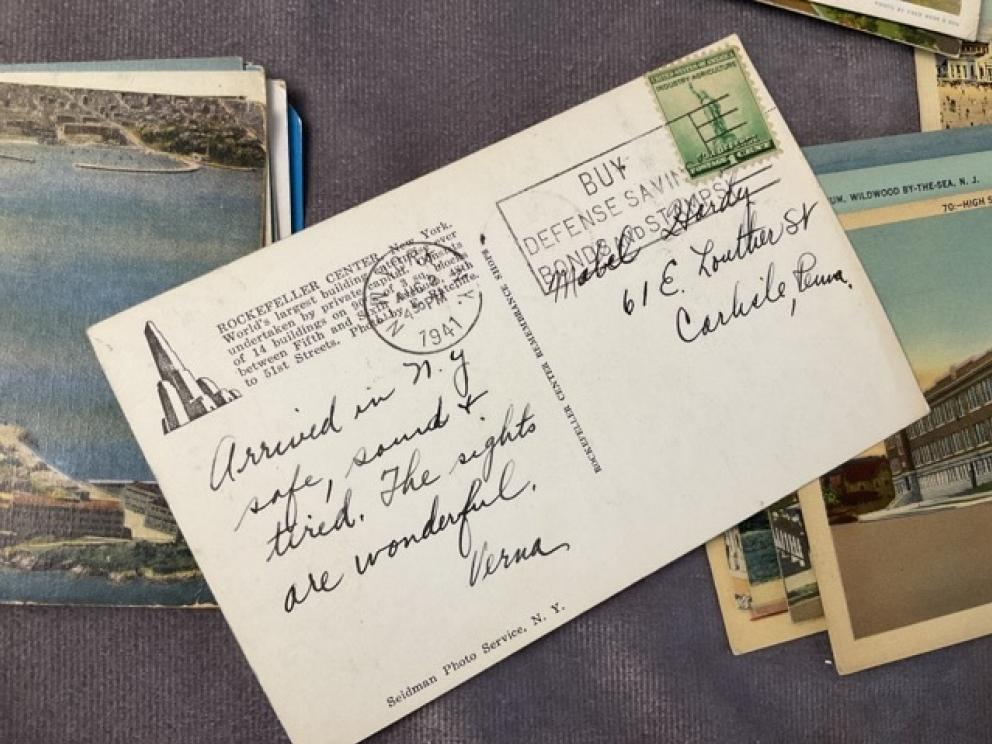 UNITED STATES OF AMERICA
INDUSTRY AGRICULTURE
FOR DEFENSE
1 CENT
BUY
DEFENSE SAVINGS
BONDS AND STAMPS
ROCKEFELLER CENTER, New York.
World's largest building enterprise ever
undertaken by private capital. Consists
of 14 buildings on
between Fifth and Sixth Avenues, 48th
to 51st Streets. Photo by
NEW YORK, N.Y.
1941
Arrived in N.Y
safe, sound +
tired. The sights
are wonderful.
Verna
ROCKEFELLER CENTER REMEMBRANCE SHOPS
Mabel Hardy
61 E. Louther St
Carlisle, Penna.
Seidman Photo Service, N. Y.
UM, WILDWOOD BY-THE-SEA, N. J.
70:—HIGH S